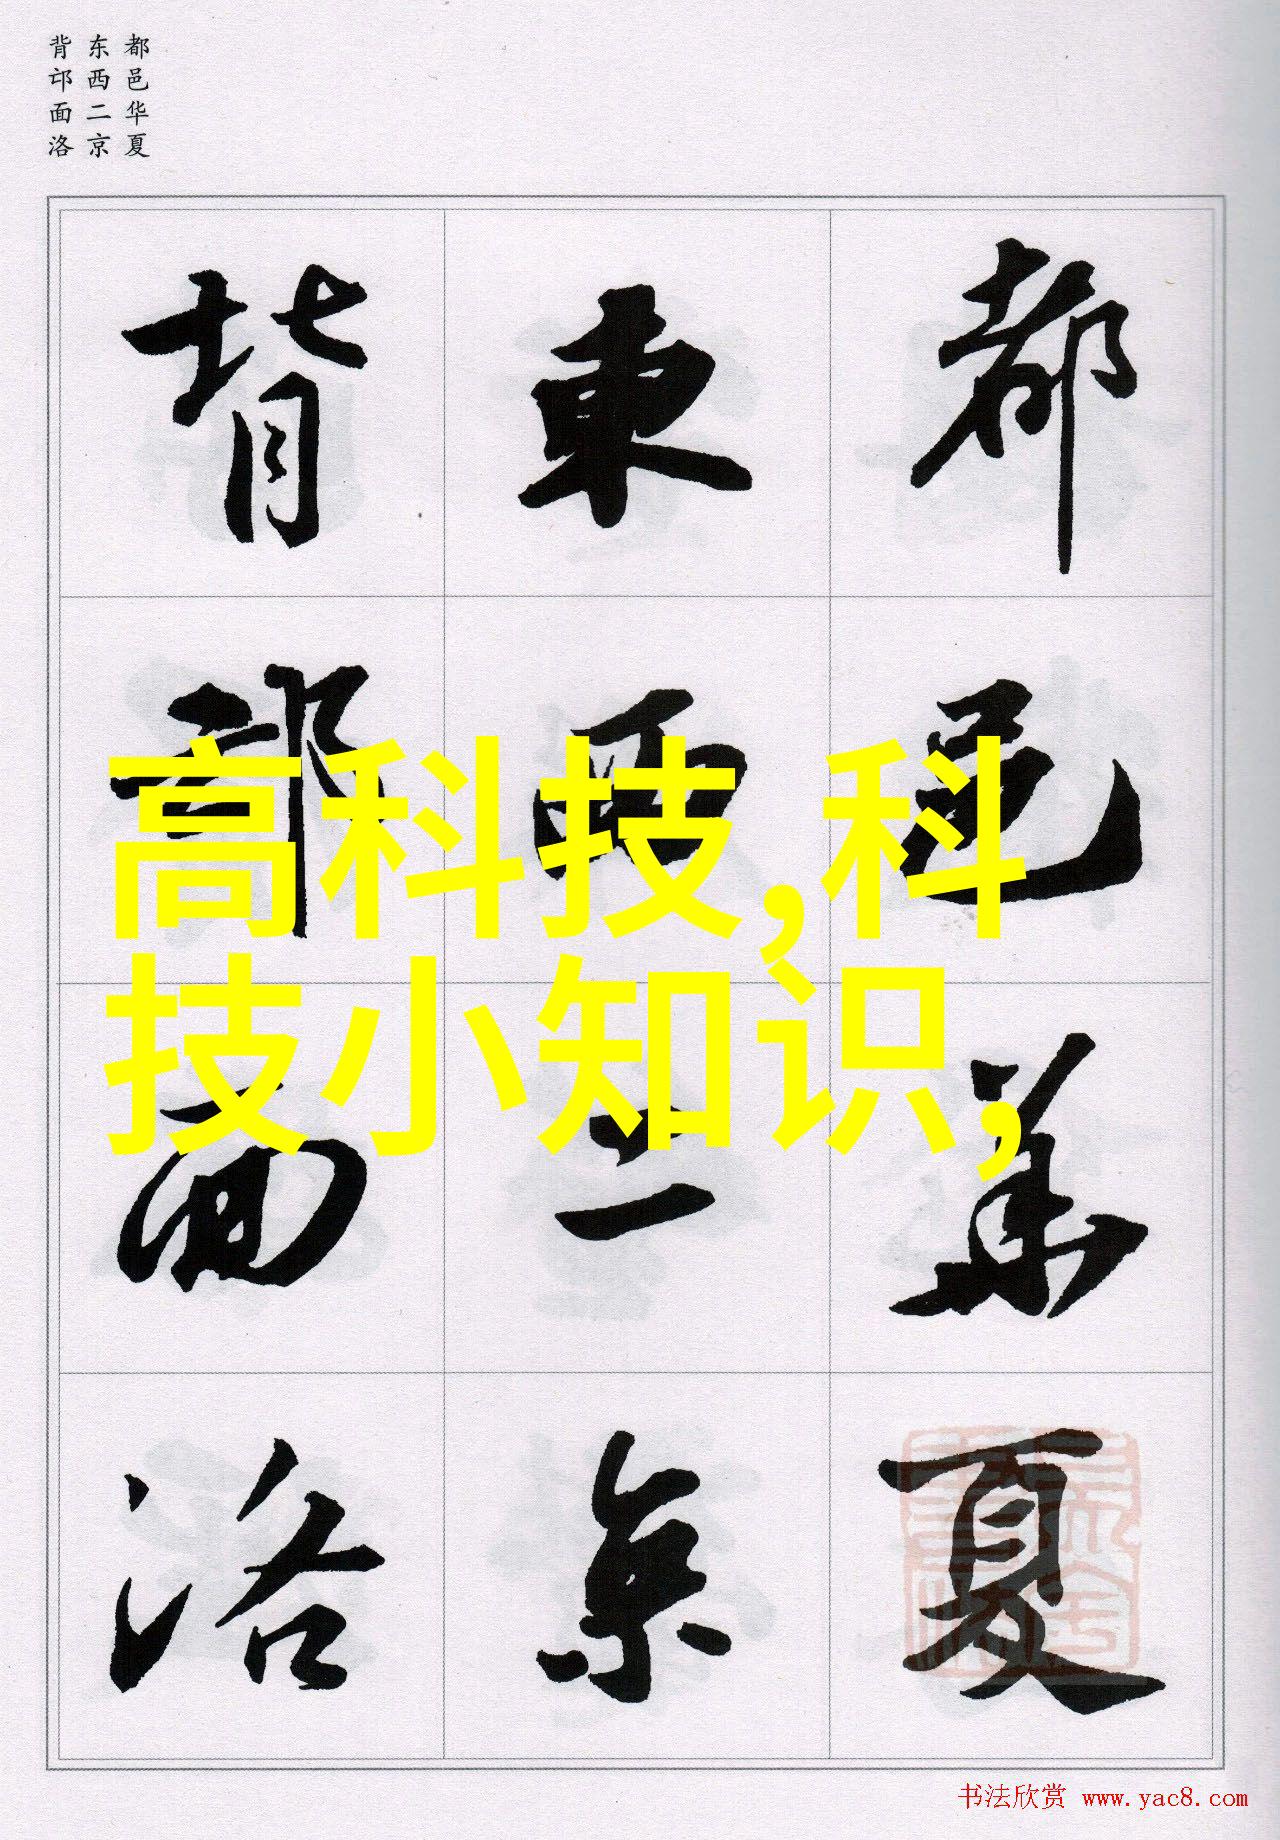 都邑华夏
东西二京
背邙面洛
都邑華夏
東西二京
背邙面洛
高科技,科
技小知识,
书法欣赏 www.yac8.com